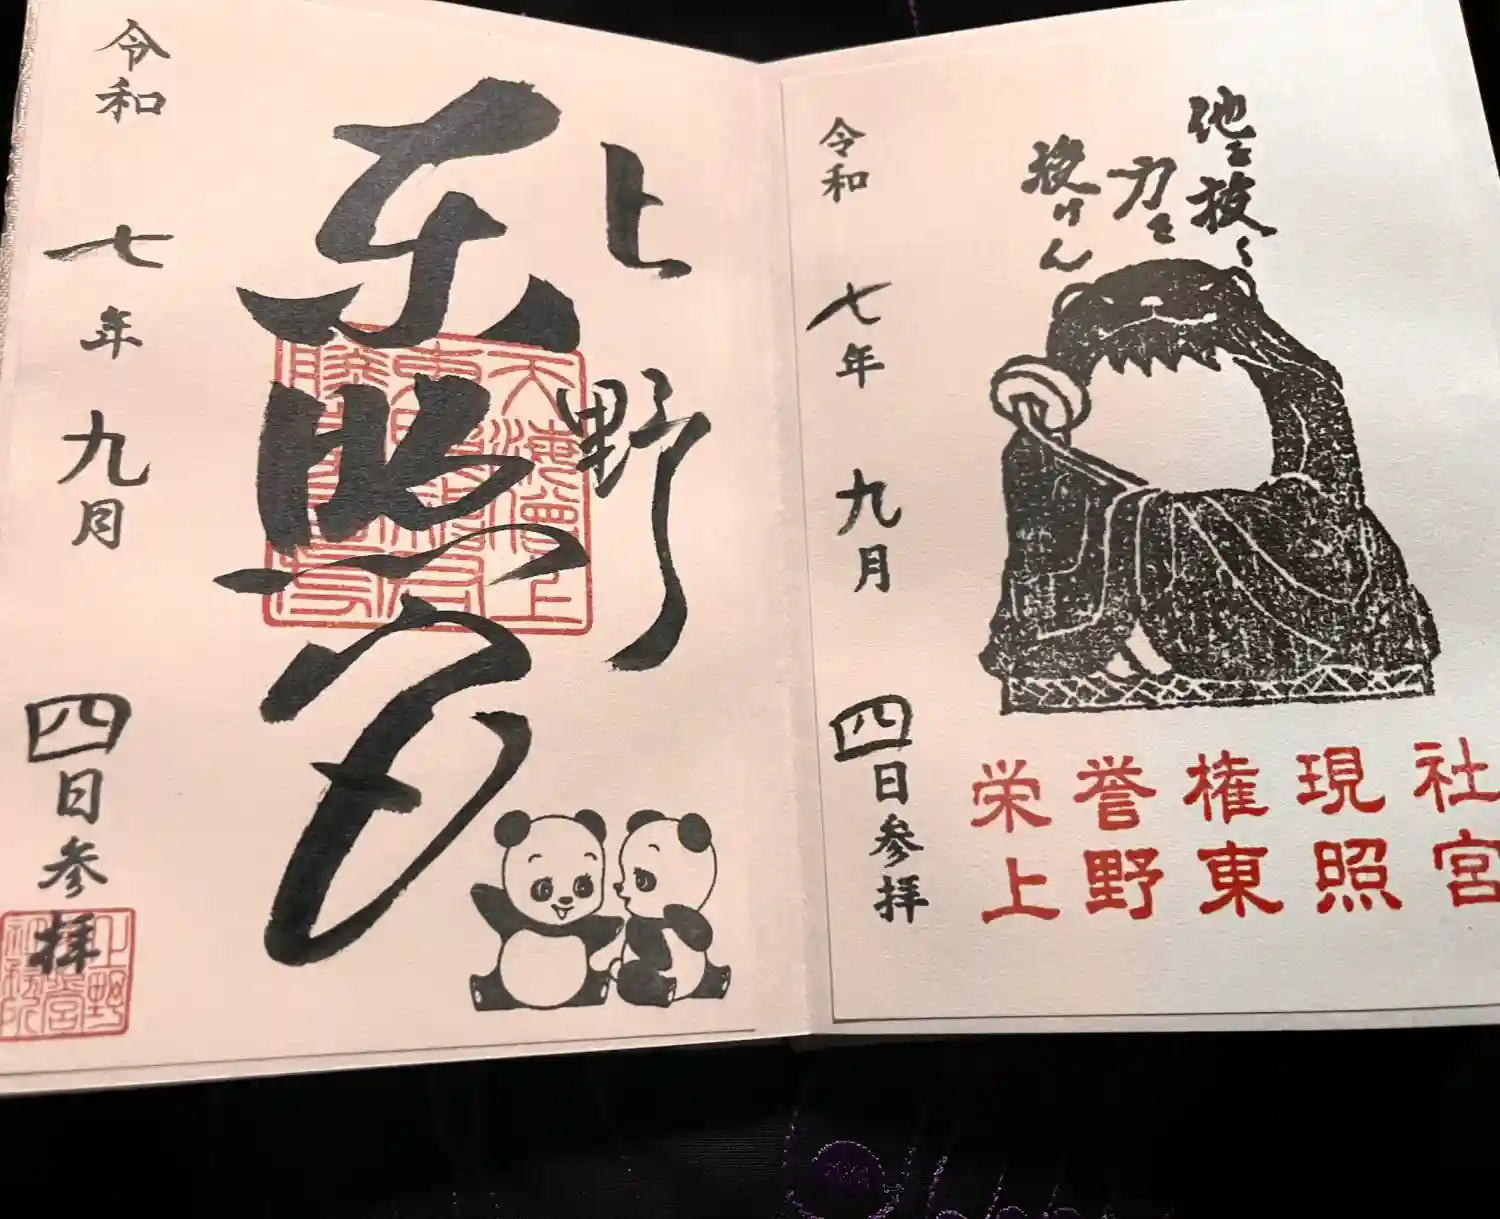 上野
東照宮
令和 七年 九月 四日参拝
他を抜く
力を
授けん
令和 七年 九月 四日参拝
栄誉権現社
上野東照宮